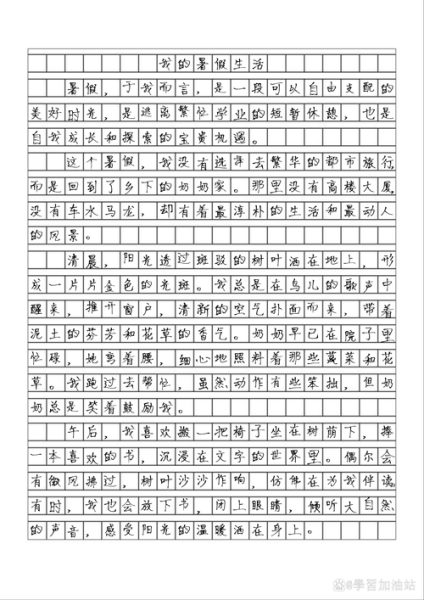 我的暑假生活
暑假，于我而言，是一段可以自由支配的
美好时光，是逃离繁忙学业的短暂休憩，也是
自我成长和探索的宝贵机遇。
这个暑假，我没有选择去繁华的都市旅行，
而是回到了乡下的奶奶家。那里没有高楼大厦，
没有车水马龙，却有着最淳朴的生活和最动人
的风景。
清晨，阳光透过斑驳的树叶洒在地上，形
成一片片金色的光斑。我总是在鸟儿的歌声中
醒来，推开窗户，清新的空气扑面而来，带着
泥土的芬芳和花草的香气。奶奶早已在院子里
忙碌，她弯着腰，细心地照料着那些蔬菜和花
草。我跑过去帮忙，虽然动作有些笨拙，但奶
奶总是笑着鼓励我。
午后，我喜欢搬一把椅子坐在树荫下，捧
一本喜欢的书，沉浸在文字的世界里。偶尔会
有微风拂过，树叶沙沙作响，仿佛在为我伴读。
有时，我也会放下书，闭上眼睛，倾听大自然
的声音，感受阳光的温暖洒在身上。
@學習加油站